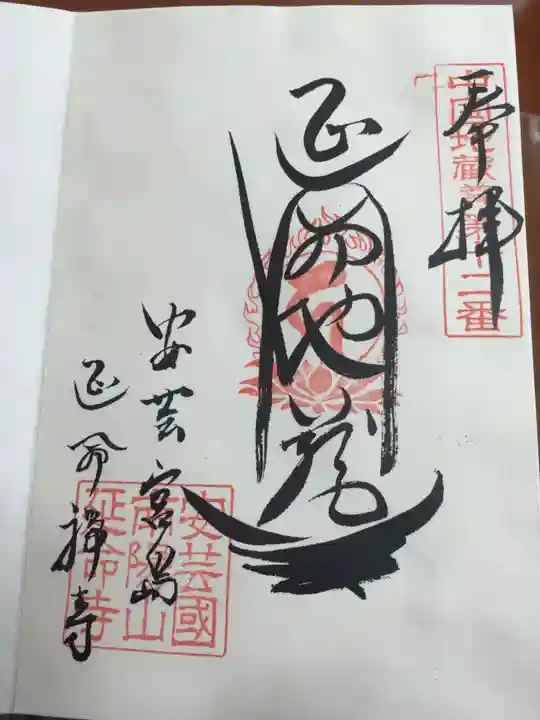 奉拝
中国地蔵尊第十二番
延命地蔵
安芸宮島
延命禅寺
安芸國
南陽山
延命寺